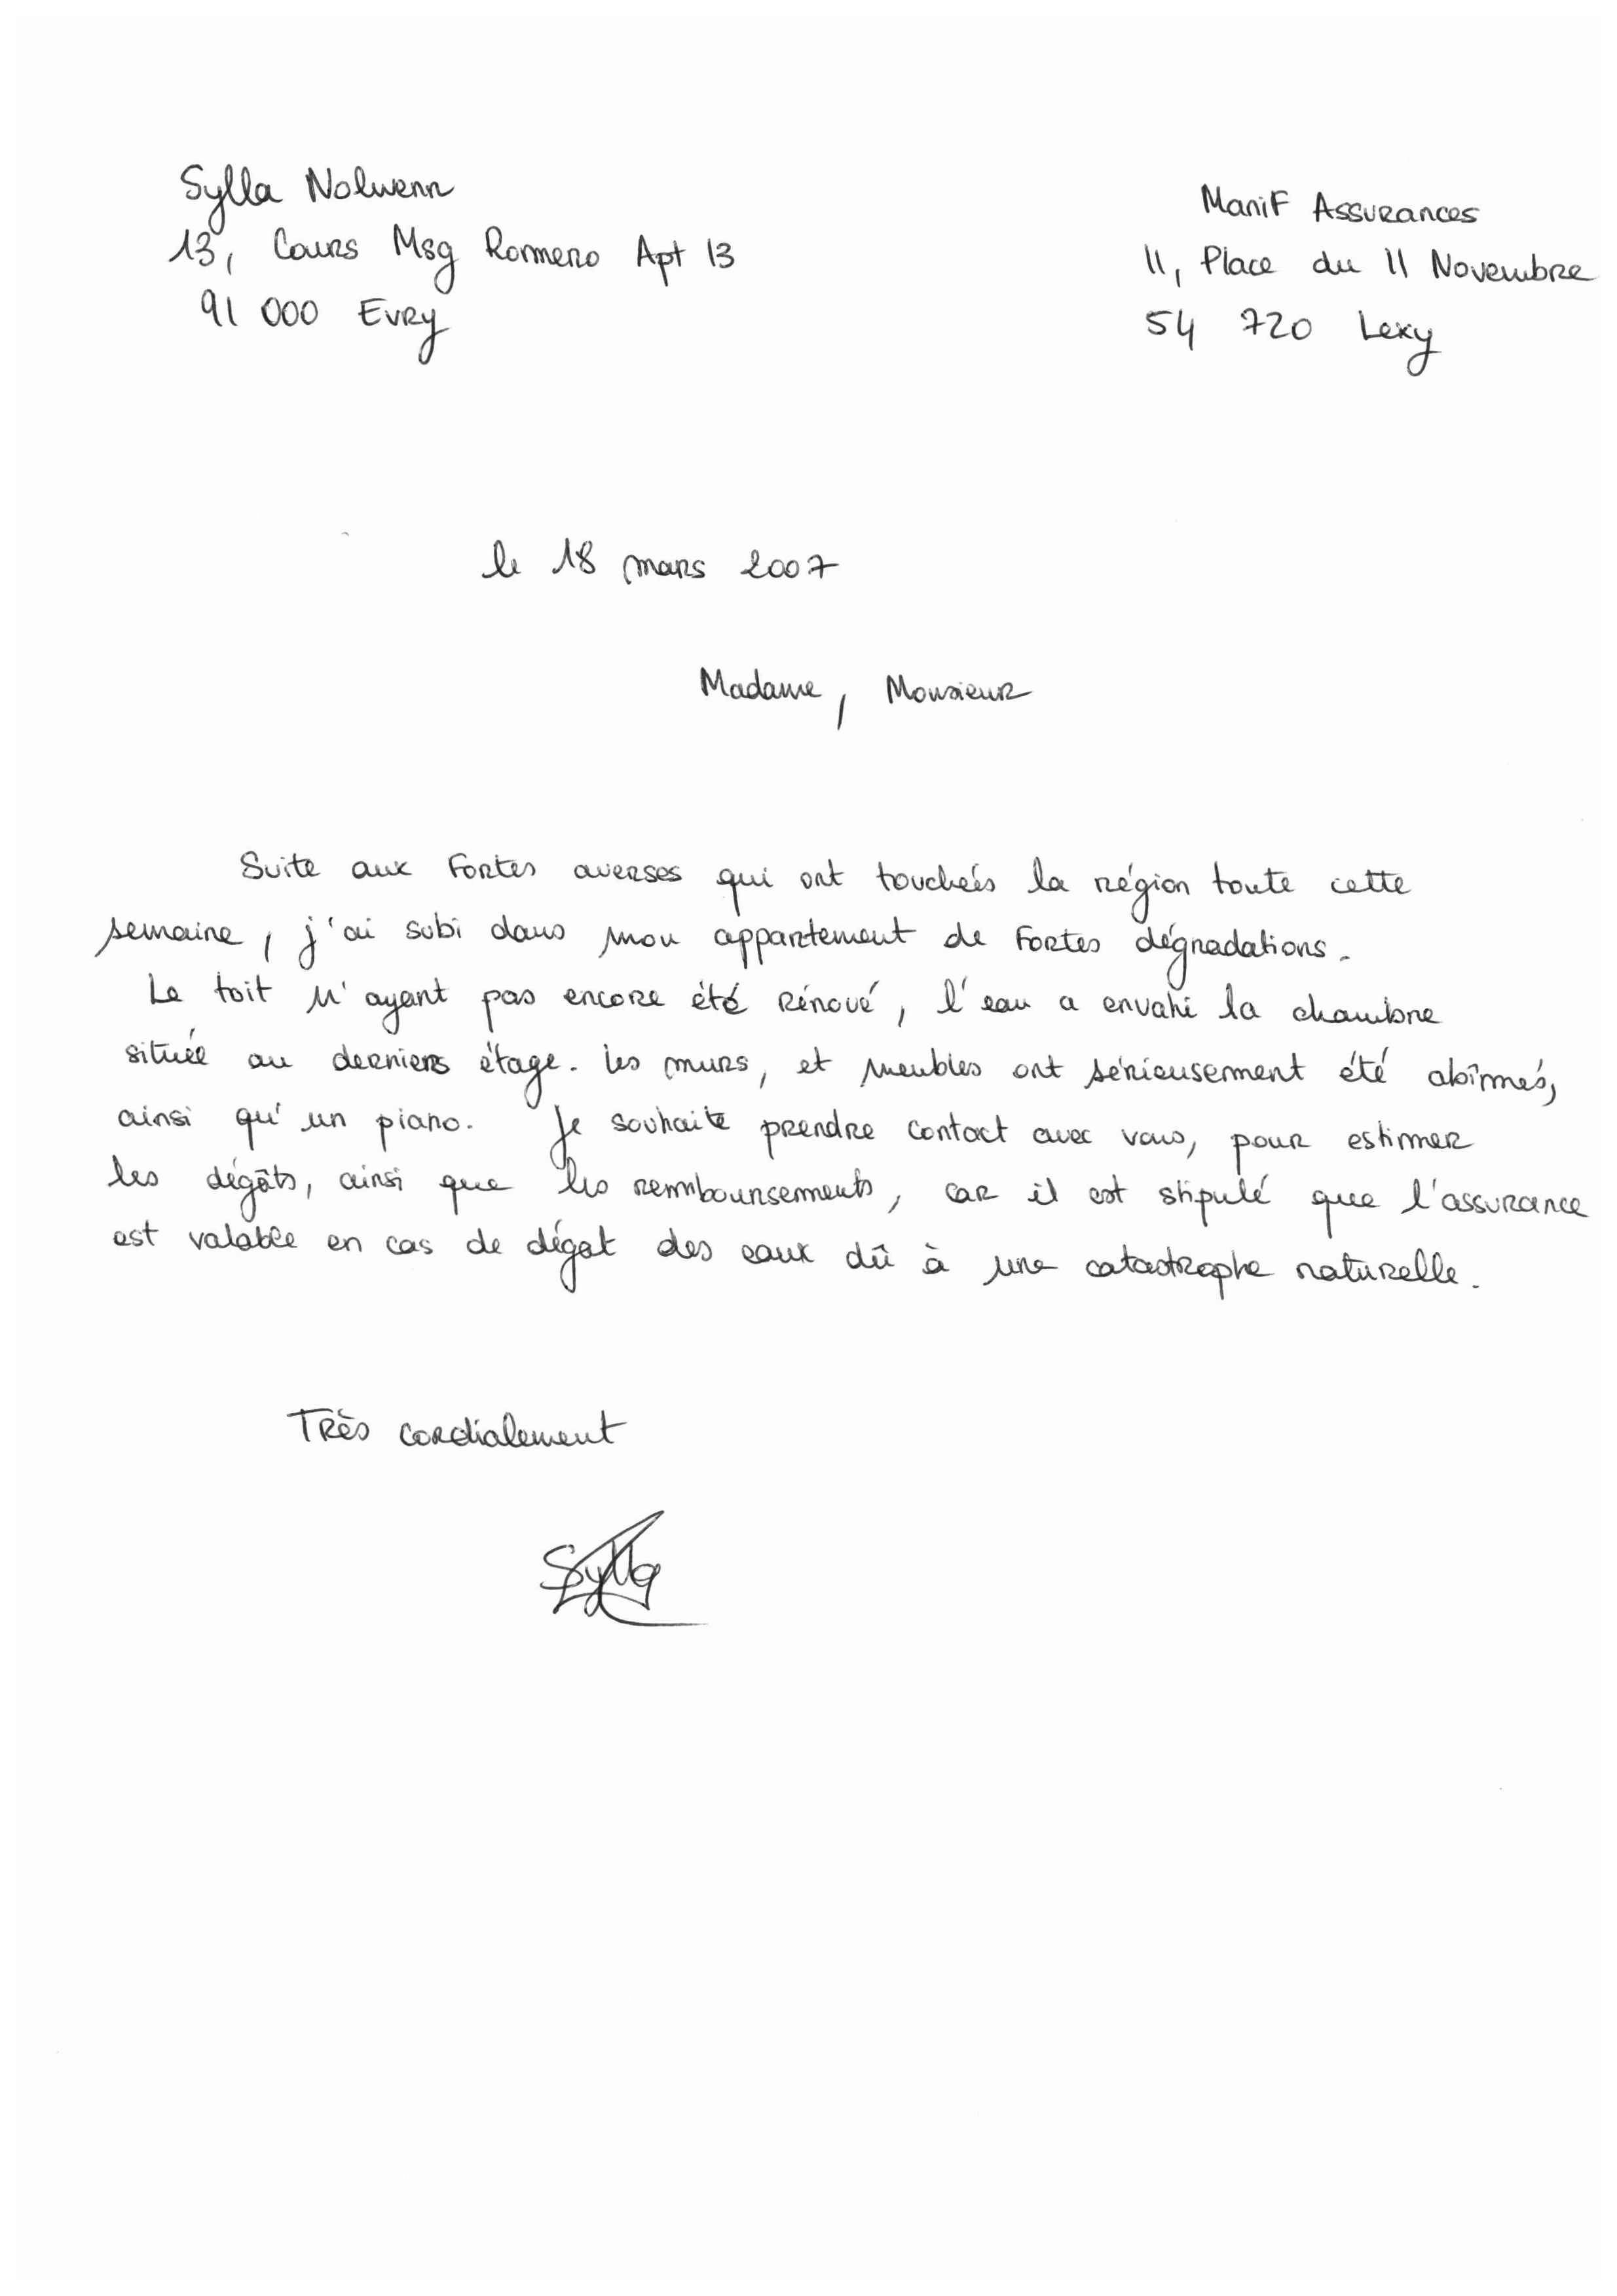 Sylla Nolwenn
13, Cours Msg Romero Apt 13
91 000 Evry
Manif Assurances
11, Place du 11 Novembre
54 720 Lexy
le 18 mars 2007
Madame, Monsieur
Suite aux fortes averses qui ont touchées la région toute cette
semaine, j'ai subi dans mon appartement de fortes dégradations.
Le toit n'ayant pas encore été rénové, l'eau a envahi la chambre
située au derniers étage. les murs, et meubles ont sérieusement été abîmés,
ainsi qu'un piano. Je souhaite prendre contact avec vous, pour estimer
les dégâts, ainsi que les remboursements, car il est stipulé que l'assurance
est valable en cas de dégat des eaux dû à une catastrophe naturelle.
Très cordialement
Sylla